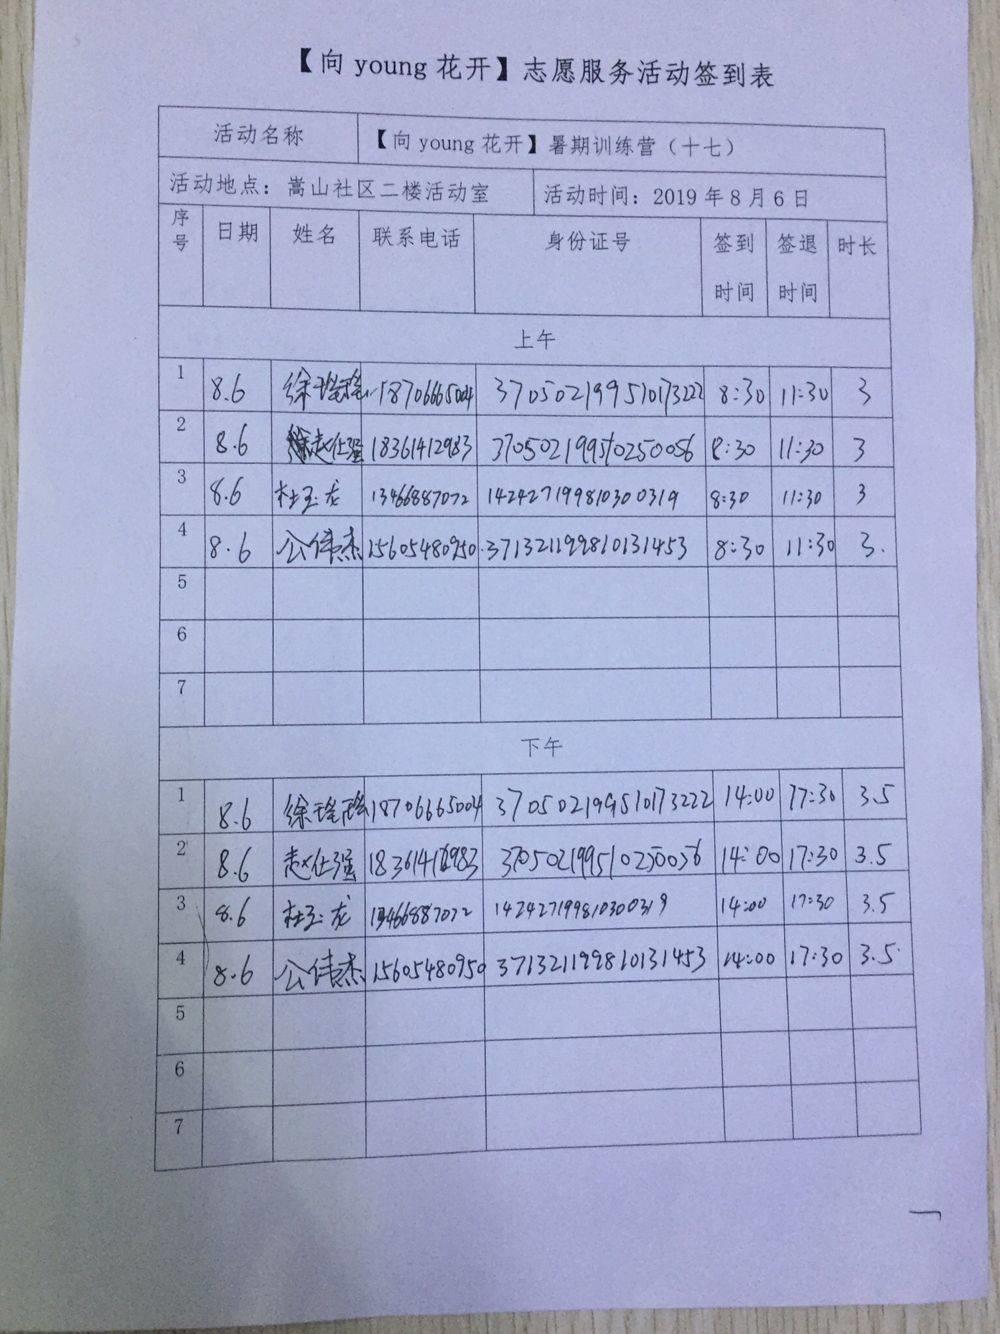 【向young花开】志愿服务活动签到表
活动名称 【向young花开】暑期训练营（十七）
活动地点：嵩山社区二楼活动室 活动时间：2019年8月6日
序号 日期 姓名 联系电话 身份证号 签到时间 签退时间 时长
上午
1 8.6 徐 18706665004 370502199510173222 8:30 11:30 3
2 8.6 赵仕强 18361412983 370502199510250056 8:30 11:30 3
3 8.6 杜玉龙 13466887072 142427199810300319 8:30 11:30 3
4 8.6 公伟杰 15605480950 371321199810131453 8:30 11:30 3.
5
6
7
下午
1 8.6 徐 18706665004 370502199510173222 14:00 17:30 3.5
2 8.6 赵仕强 18361412983 370502199510250056 14:00 17:30 3.5
3 8.6 杜玉龙 13466887072 142427199810300319 14:00 17:30 3.5
4 8.6 公伟杰 15605480950 371321199810131453 14:00 17:30 3.5
5
6
7